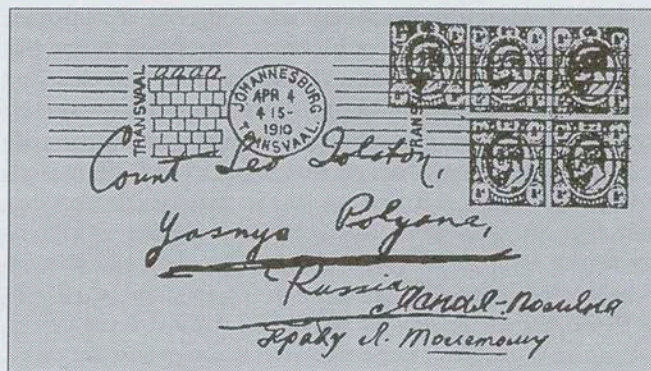 TRANSVAAL
JOHANNESBURG
APR 4
4 15-
1910
TRANSVAAL.
TRANSVAAL
Count Leo Tolstoy,
Yasnya Polyana,
Russia
Ясная-Поляна
Графу Л. Толстому